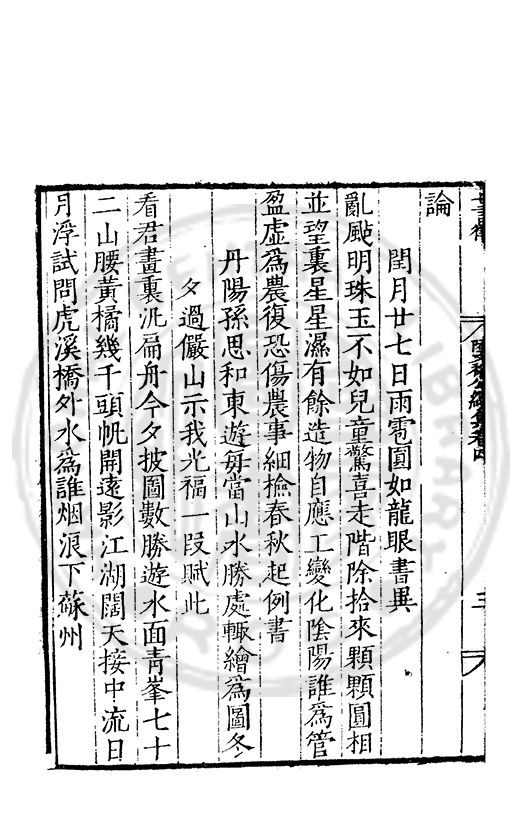 論
閏月廿七日雨雹圓如龍眼書異
亂颭明珠玉不如兒童驚喜走階除拾來顆顆圓相
並望裏星星濕有餘造物自應工變化陰陽誰爲管
盈虛爲農復恐傷農事細檢春秋起例書
丹陽孫思和東遊每當山水勝處輙繪爲圖冬
夕過儼山示我光福一段賦此
看君畫裏汎扁舟今夕披圖數勝遊水面靑峯七十
二山腰黃橘幾千頭帆開遠影江湖闊天接中流日
月浮試問虎溪橋外水爲誰烟浪下蘇州